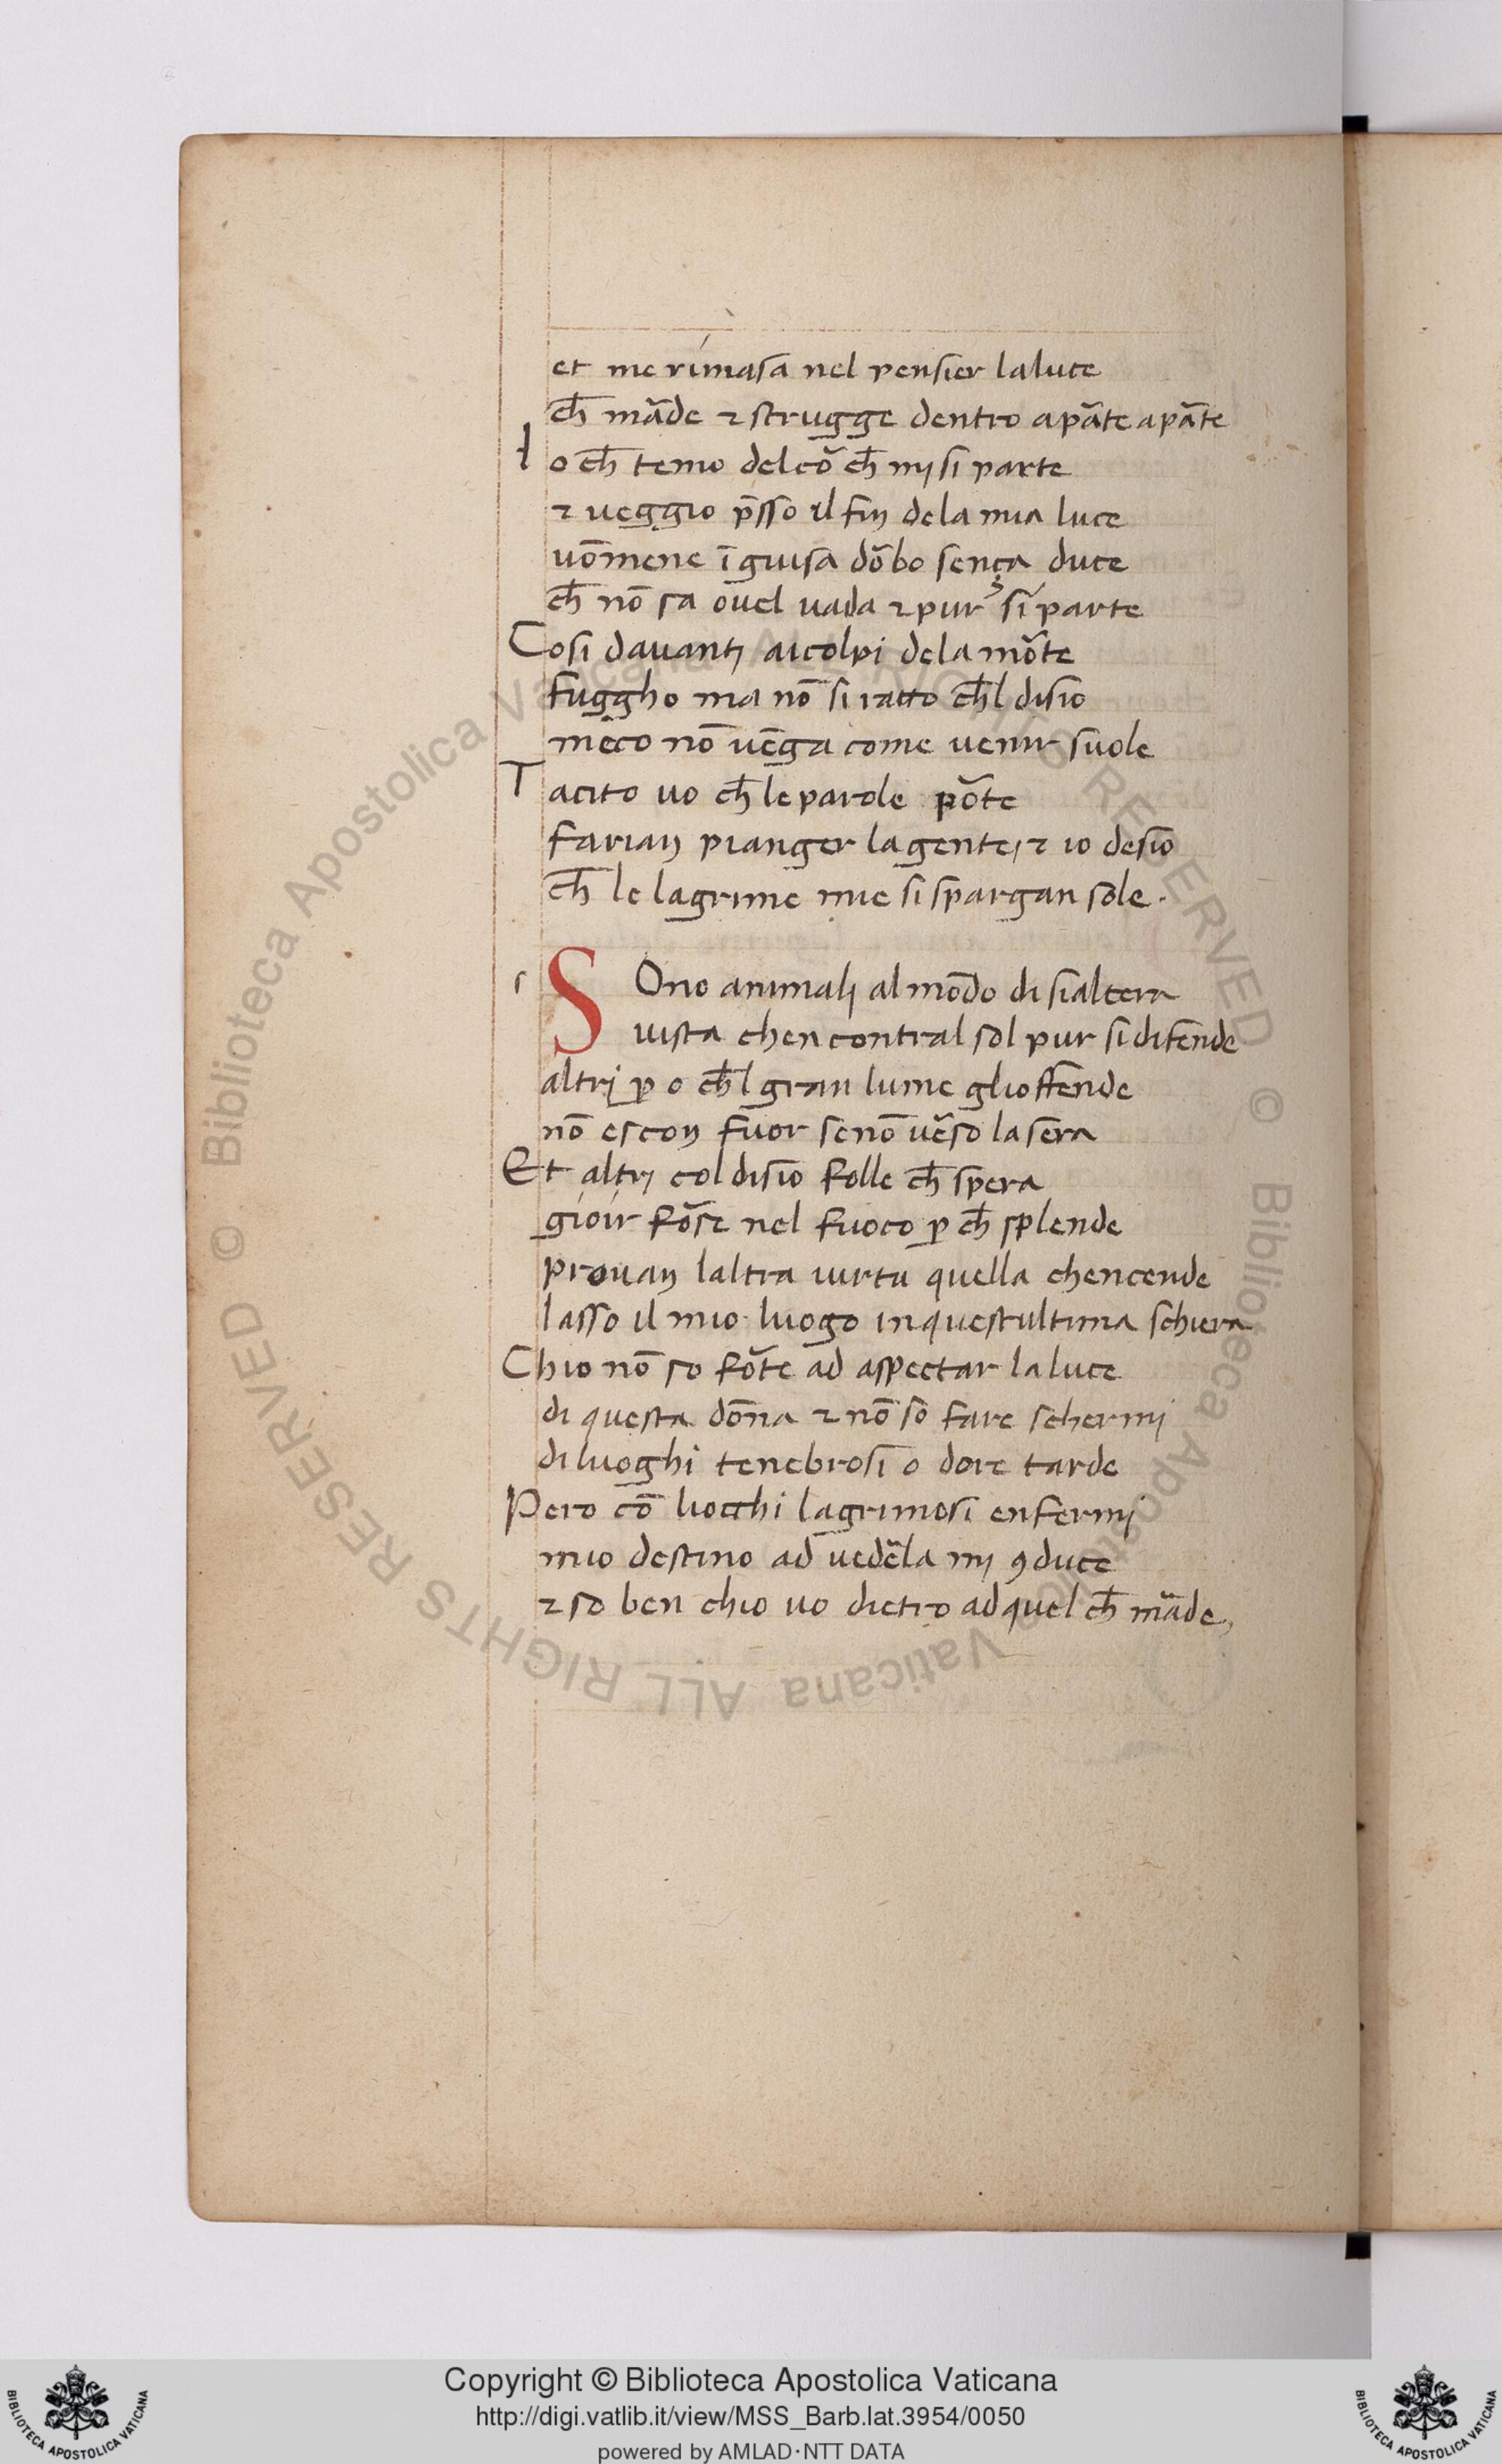 et me rimasa nel pensier laluce
ch̄ mãde ⁊ strugge dentro apãte apãte
I o ch̄ temo delcõ ch̄ mj si parte
⁊ ueggio p̄sso il fin dela mia luce
uõmene ī guisa dõbo sença duce
ch̄ nõ sa ouel uada ⁊ pur si parte
Cosi dauantj aicolpi dela mõte
fuggho ma nõ si ratto ch̄l disio
meco nõ uẽga come uenir suole
T acito uo ch̄ le parole mõte
farian pianger lagente, ⁊ io desio
ch̄ le lagrime mie si spargan sole.
s S Ono animalj almõdo di sialtera
uista chen contral sol pur si difende
altrj ꝑ o ch̄l gran lume glioffende
nõ escon fuor senõ uẽso lasera
Et altrj col disio folle ch̄ spera
gioir fõse nel fuoco ꝑ ch̄ splende
prouan laltra uirtu quella chencende
lasso il mio luogo inquestultima schiera
Chio nõ so fõte ad aspectar laluce
di questa dõna ⁊ nõ so fare schermj
diluoghi tenebrosi o dore tarde
Pero cõ liocchi lagrimosi enfermj
mio destino ad uedẽla mj ꝯduce
⁊ so ben chio uo dietro adquel ch̄ mãde,
Copyright © Biblioteca Apostolica Vaticana
http://digi.vatlib.it/view/MSS_Barb.lat.3954/0050
powered by AMLAD·NTT DATA
BIBLIOTECA APOSTOLICA VATICANA
BIBLIOTECA APOSTOLICA VATICANA
© Biblioteca Apostolica Vaticana ALL RIGHTS RESERVED
© Biblioteca Apostolica Vaticana ALL RIGHTS RESERVED